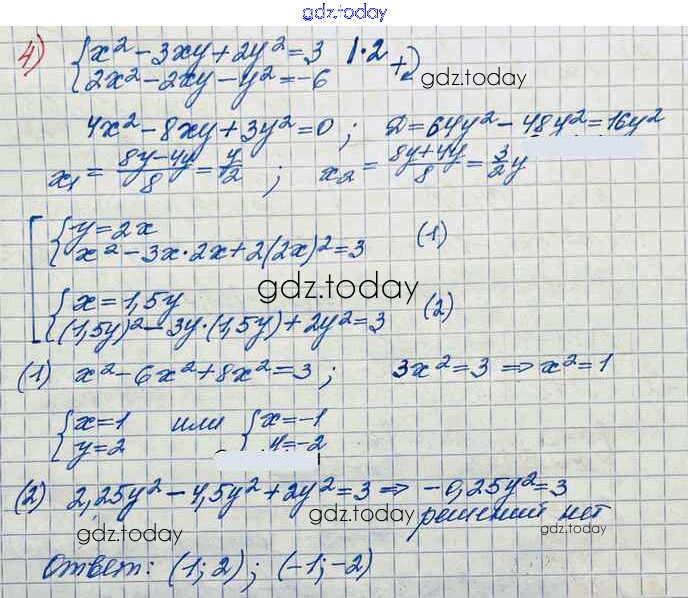 gdz.today
4) { x² - 3xy + 2y² = 3 | · 2
{ 2x² - 2xy - y² = -6 +
gdz.today
4x² - 8xy + 3y² = 0 ; D = 64y² - 48y² = 16y²
x₁ = (8y - 4y)/8 = y/2 ; x₂ = (8y + 4y)/8 = 3/2 y
[ { y = 2x
{ x² - 3x · 2x + 2(2x)² = 3 (1)
gdz.today
{ x = 1,5y
{ (1,5y)² - 3y · (1,5y) + 2y² = 3 (2)
(1) x² - 6x² + 8x² = 3 ; 3x² = 3 ⇒ x² = 1
{ x = 1 или { x = -1
{ y = 2 { y = -2
(2) 2,25y² - 4,5y² + 2y² = 3 ⇒ -0,25y² = 3
решений нет
gdz.today gdz.today gdz.today
Ответ: (1; 2) ; (-1; -2)